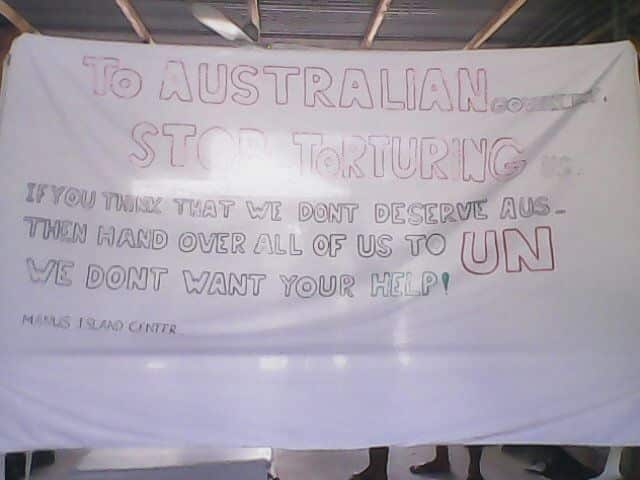 TO AUSTRALIAN
STOP TORTURING
IF YOU THINK THAT WE DONT DESERVE AUS-
THEN HAND OVER ALL OF US TO UN
WE DONT WANT YOUR HELP!
MANUS ISLAND CENTER